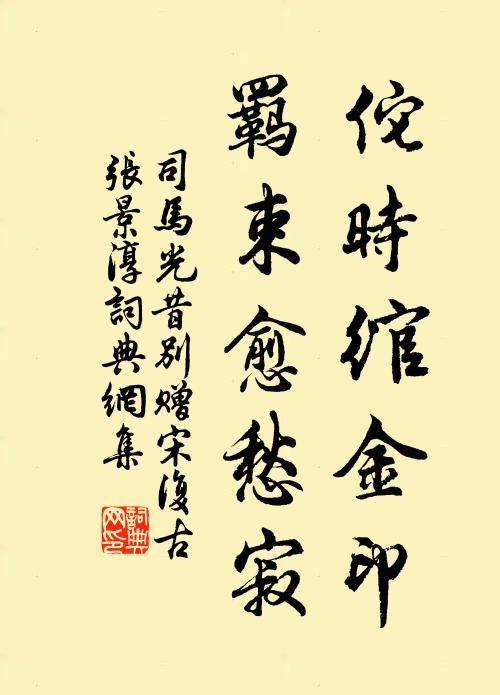 佗時綰金印
羈束愈愁寂
司馬光昔別贈宋復古
張景淳詞典網集
詞典
网印